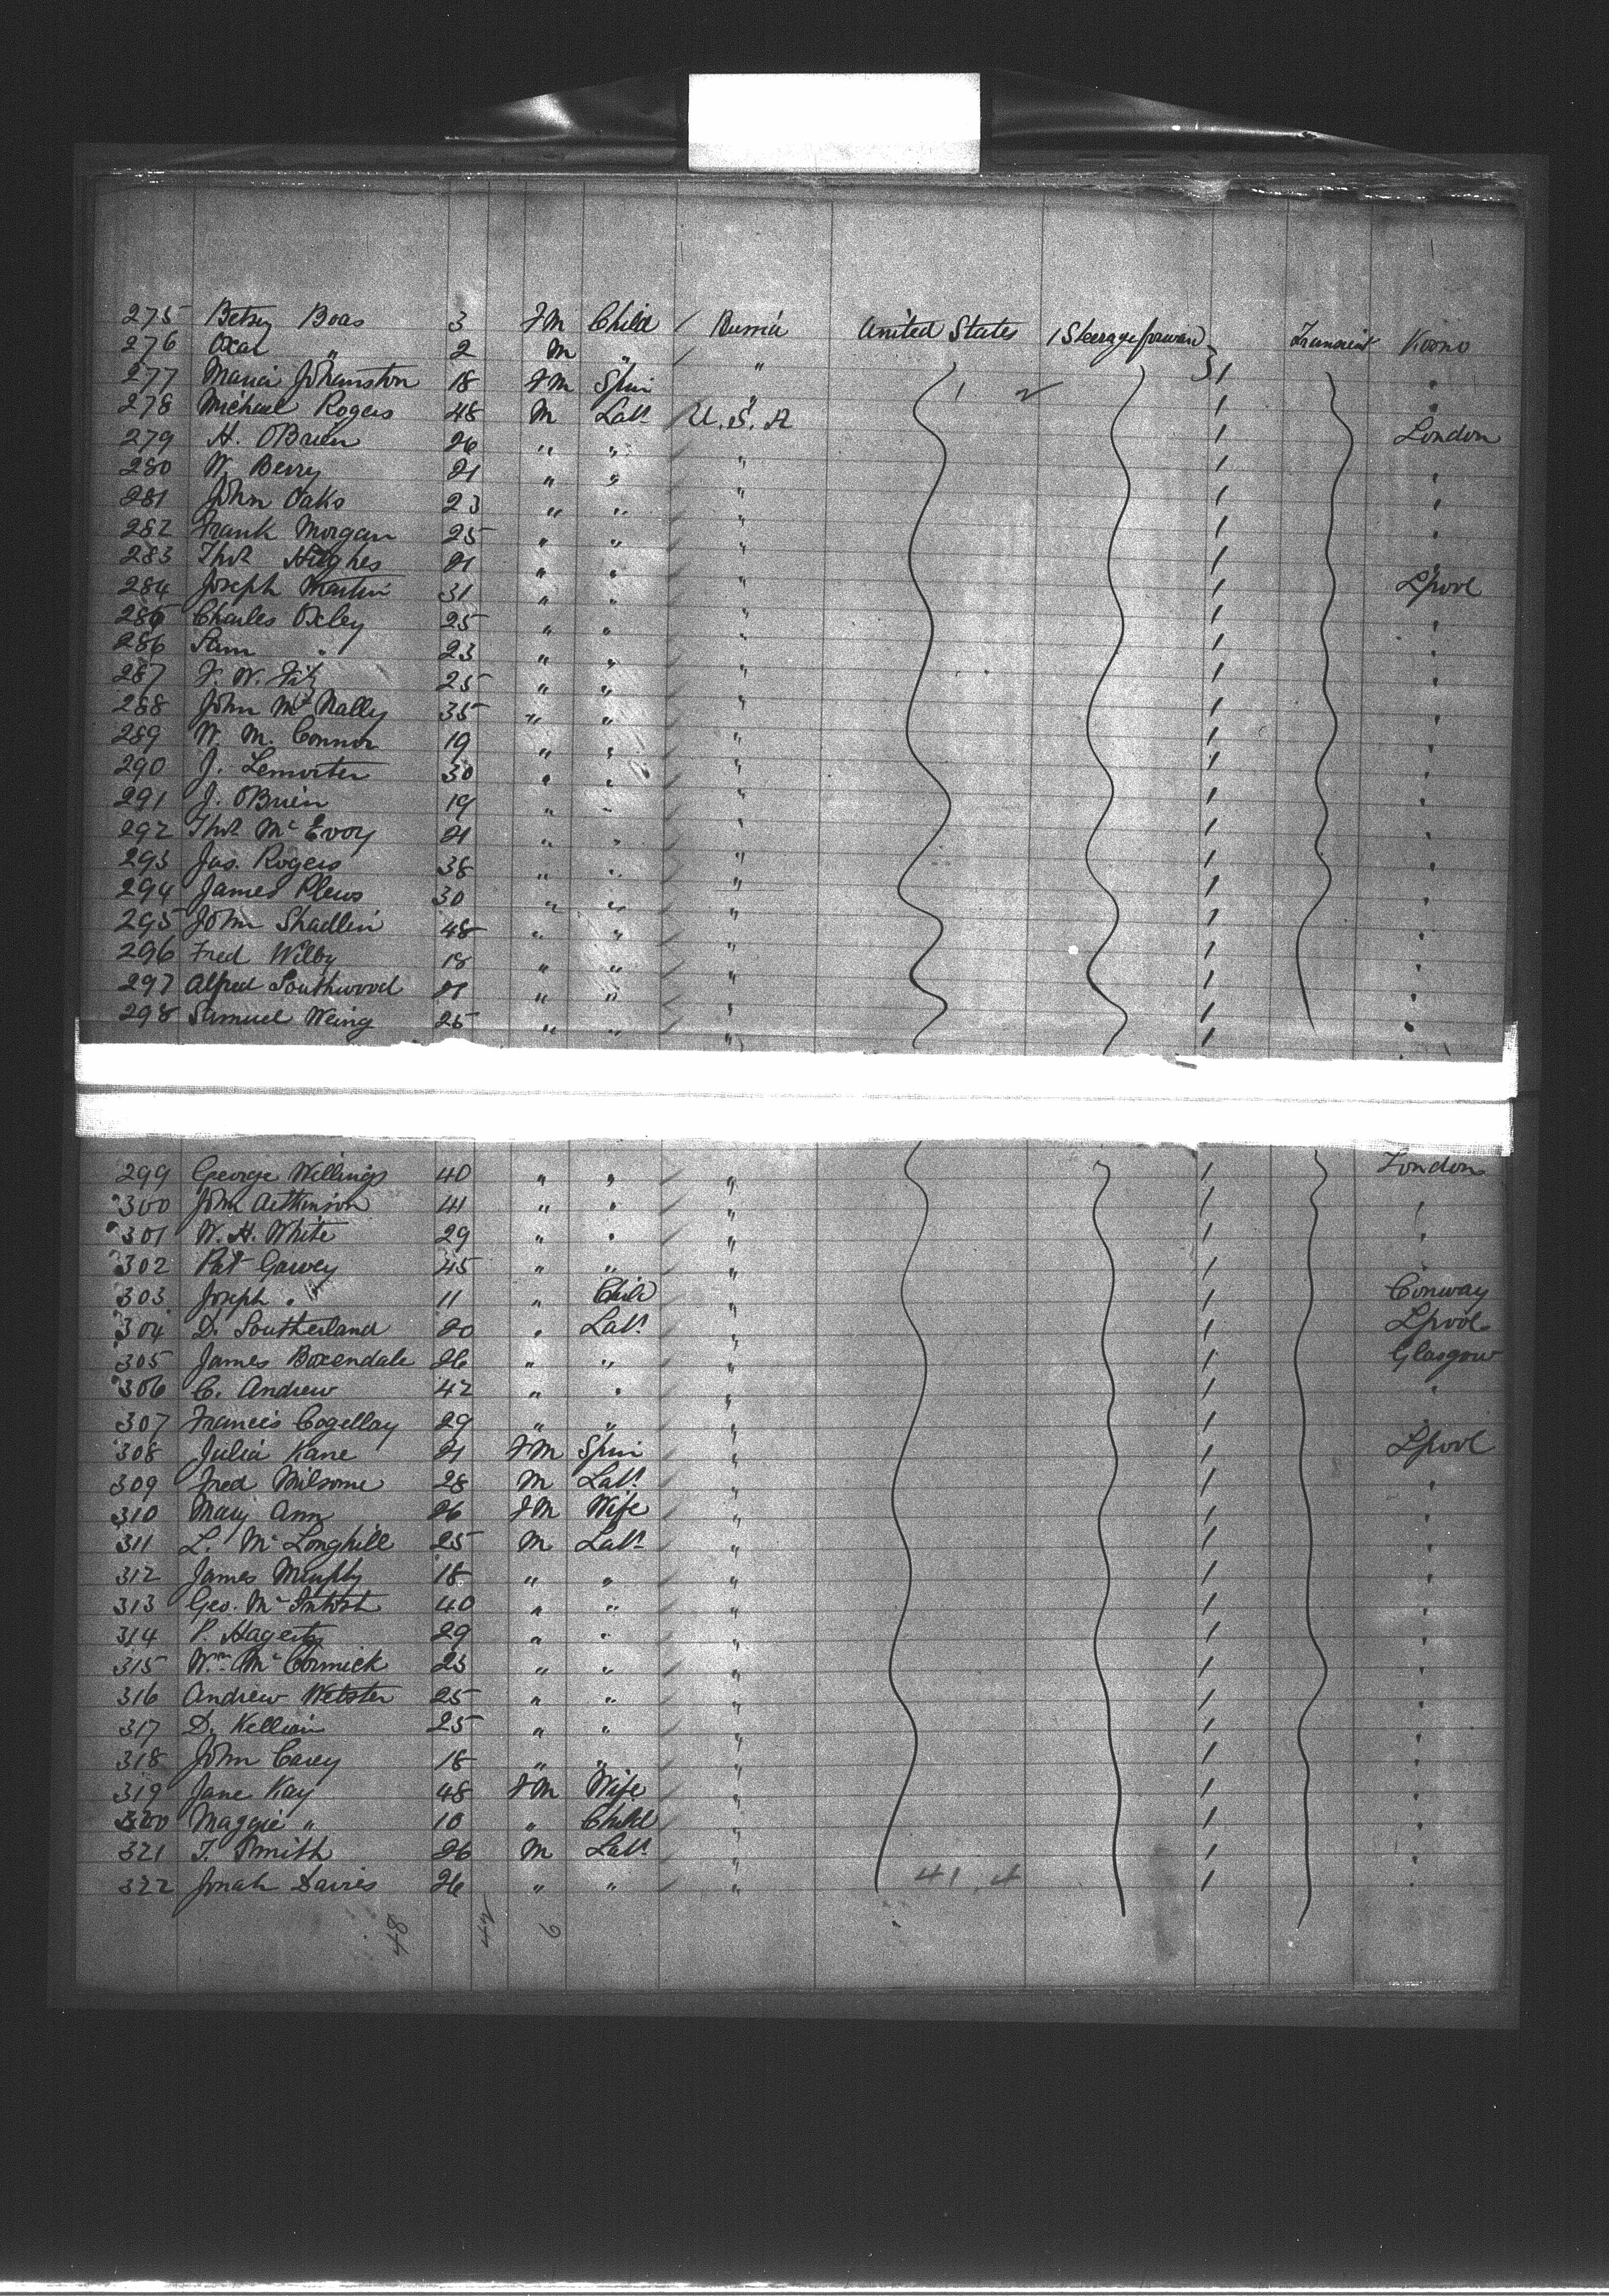 275 Betsy Boas 3 FM Child / Russia United States / Steerage forward 3 / Transient Kovno
276 Oxar " 2 M " / " / "
277 Maria Johanston 18 FM Spin " / "
278 Michael Rogers 48 M Labr U.S.A / London
279 H. OBrien 26 " " " / "
280 W. Berry 21 " " " / "
281 John Oaks 23 " " " / "
282 Frank Morgan 25 " " " / "
283 Thos Hughes 21 " " " / Lpool
284 Joseph Martin 31 " " " / "
285 Charles Oxley 25 " " " / "
286 Sam " 23 " " " / "
287 F. W. Fitz 25 " " " / "
288 John McNally 35 " " " / "
289 W. M. Connor 19 " " " / "
290 J. Lemorter 30 " " " / "
291 J. OBrien 19 " " " / "
292 Thos McEvoy 21 " " " / "
293 Jas. Rogers 38 " " " / "
294 James Plews 30 " " " / "
295 John Shadlin 48 " " " / "
296 Fred Wilby 18 " " " / "
297 Alfred Southwood 21 " " " / "
298 Samuel Weing 25 " " " / "
299 George Willings 40 " " " / London
300 John Aitkinson 41 " " " / "
301 W. H. White 29 " " " / "
302 Pat Garvey 45 " " " / Conway
303 Joseph " 11 " Child " / Lpool
304 D. Southerland 20 " Labr " / Glasgow
305 James Boxendale 26 " " " / "
306 C. Andrew 42 " " " / "
307 Francis Cogellay 29 " " " / Lpool
308 Julia Kane 21 FM Spin " / "
309 Fred Milsome 28 M Labr " / "
310 Mary Ann 26 FM Wife " / "
311 L. McLonghill 25 M Labr " / "
312 James Murphy 18 " " " / "
313 Geo. McIntosh 40 " " " / "
314 P. Hagerty 29 " " " / "
315 Wm McCormick 23 " " " / "
316 Andrew Webster 25 " " " / "
317 D. Kellian 25 " " " / "
318 John Carey 18 " " " / "
319 Jane Kay 48 FM Wife " / "
320 Maggie " 10 " Child " / "
321 T. Smith 26 M Labr " / "
322 Jonah Davies 26 " " " 41.4 / "
48 42 6